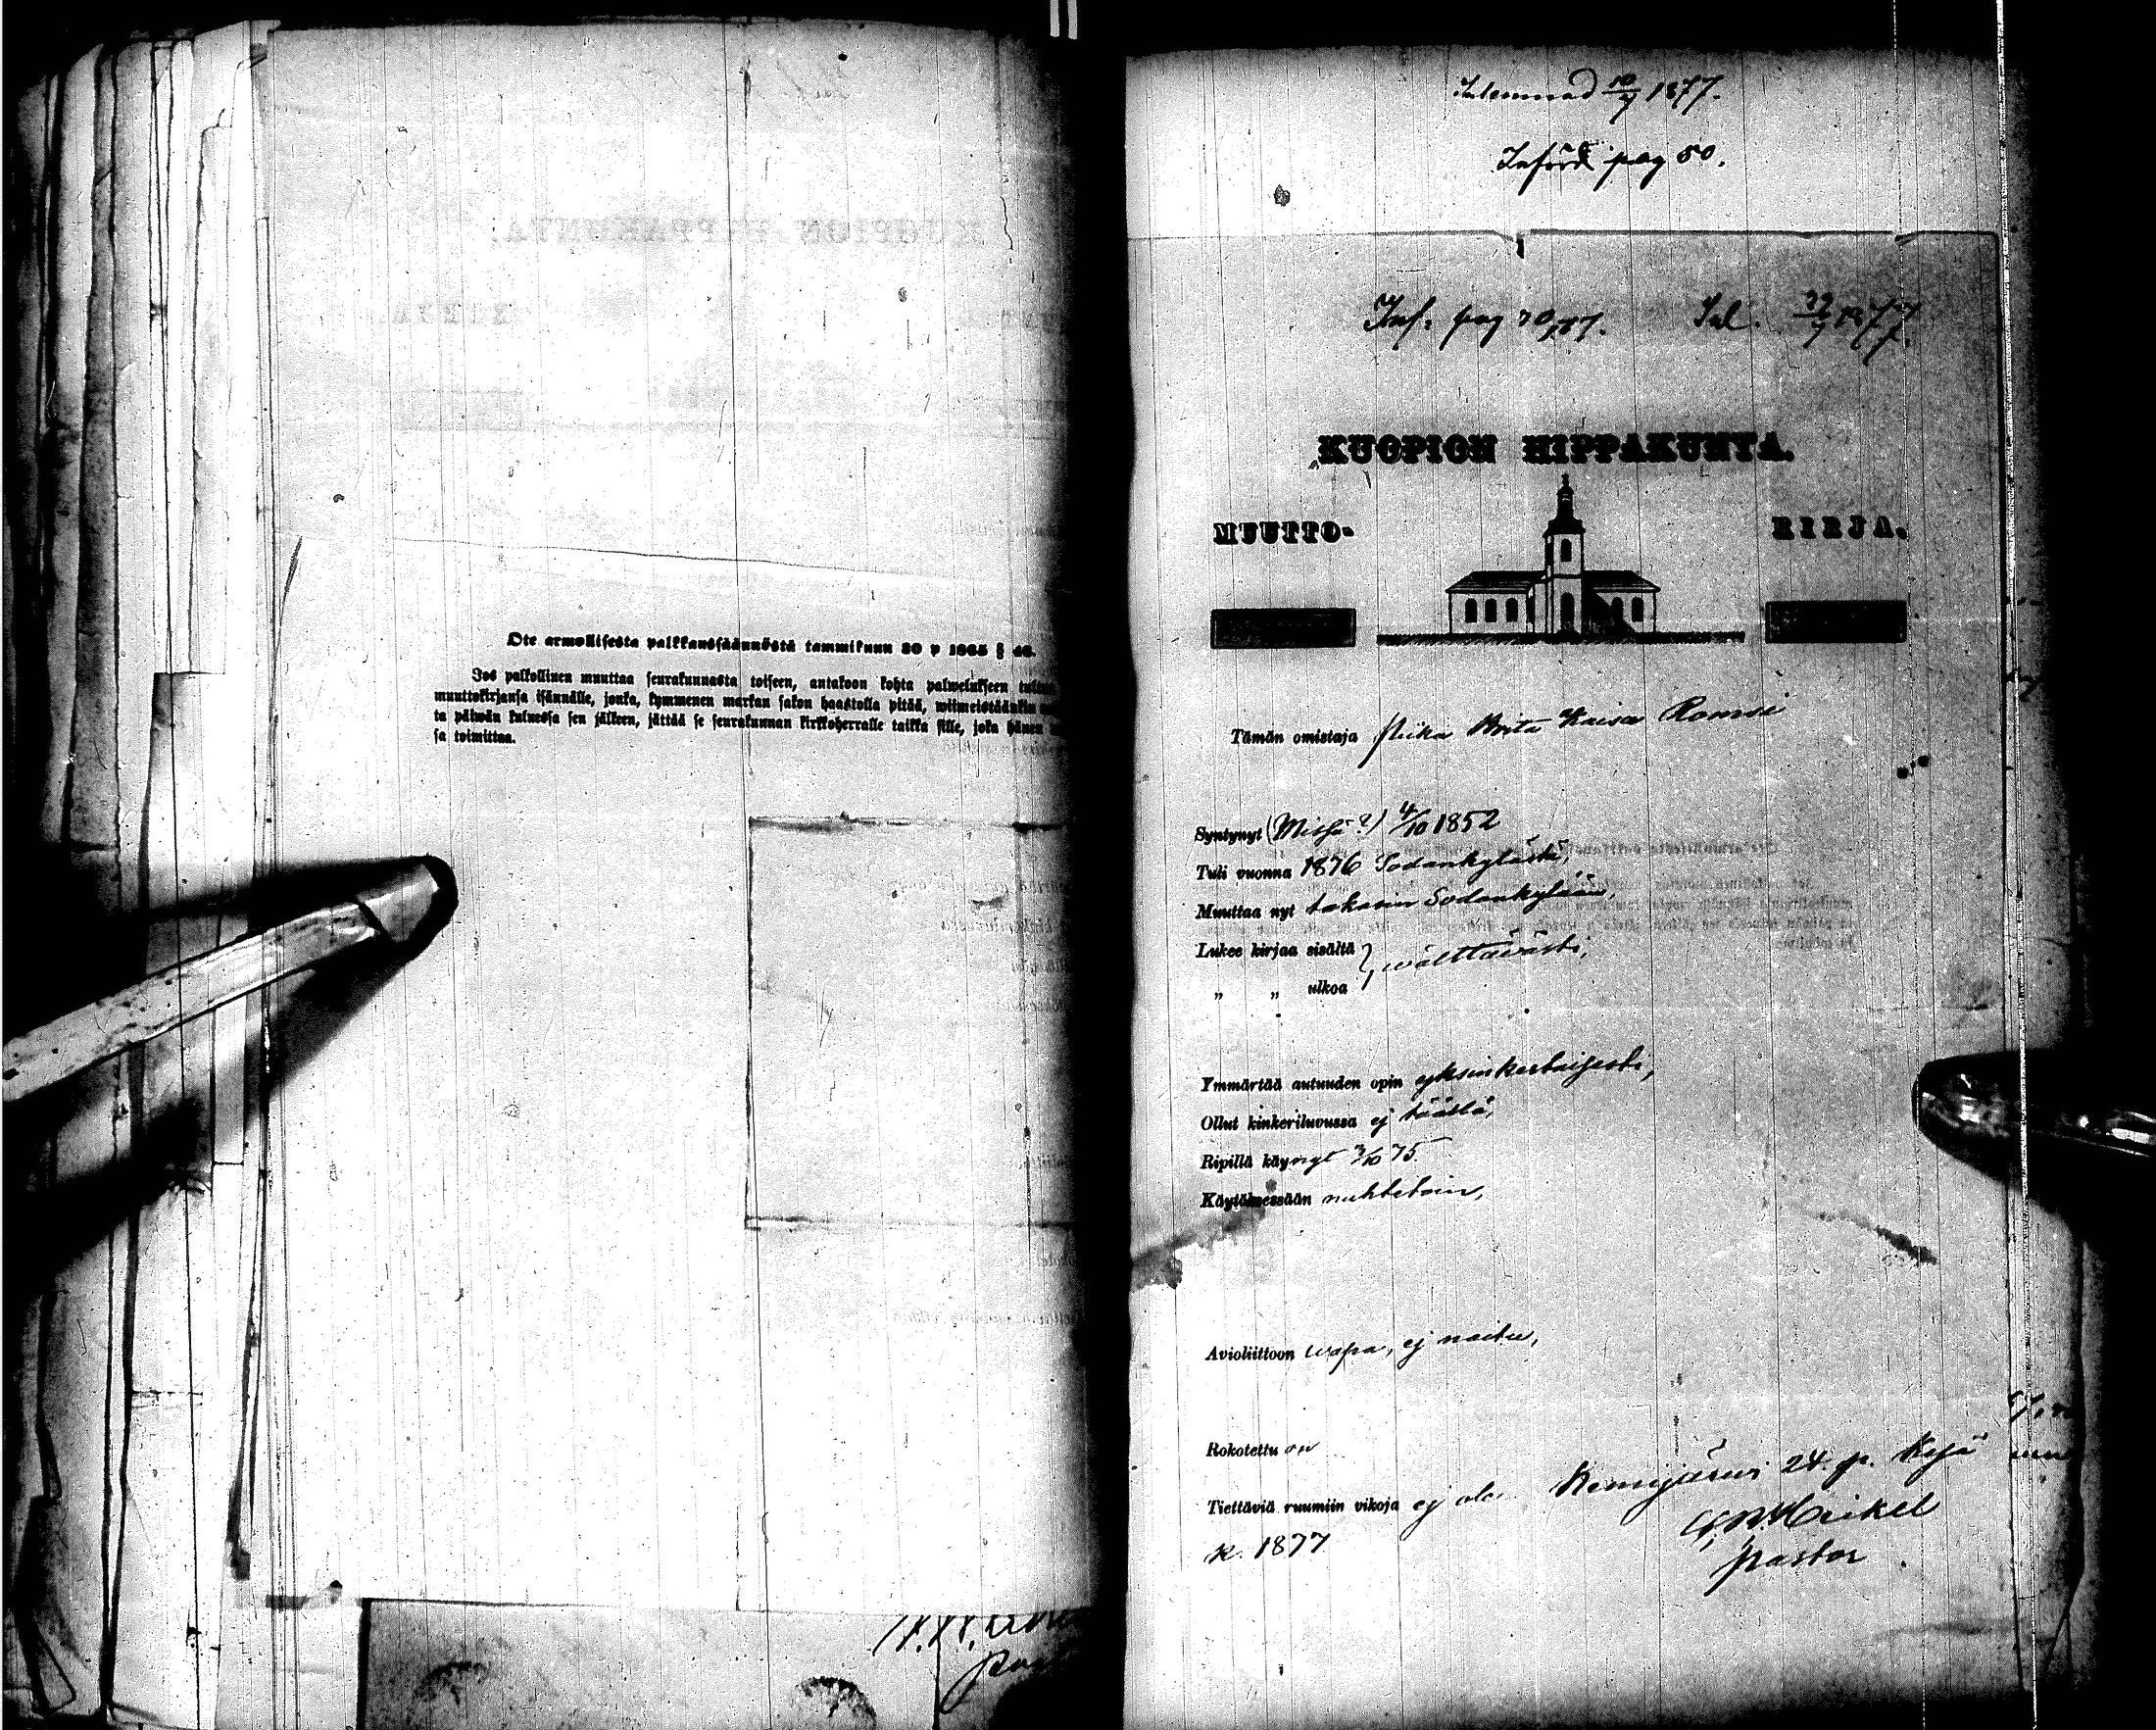 Ote armollisesta palkkaussäännöstä tammikuun 30 p 1865 §
Jos palkollinen muuttaa seurakunnasta toiseen, antakoon kohta palwelukseen
muuttokirjansa isännälle, jonka, kymmenen markan sakon haastolla pitää, wiimeistäänkin
ta päiwän kuluessa sen jälkeen, jättää se seurakunnan kirkkoherralle taikka sille, joka hänen
sa toimittaa.
Inlemnad 10/7 1877.
Införd pag 50.
Inf. pag Inl. 1877.
KUOPION HIPPAKUNTA.
MUUTTO- KIRJA.
Tämän omistaja Piika Brita Kaisa
Syntynyt (Missä?) 4/10 1852
Tuli vuonna 1876 Sodankylästä,
Muuttaa nyt takasin Sodankylään,
Lukee kirjaa sisältä } wälttäwästi,
„ „ ulkoa
Ymmärtää autuuden opin yksinkertaisesti,
Ollut kinkeriluvussa ej täällä,
Ripillä käynyt /10 75.
Käytöksessään nuhteton,
Avioliittoon wapa, ej naitu,
Rokotettu on
Tiettäviä ruumiin vikoja ej ole. Kemijärwi 24 p. Kesä
k. 1877
Heikel
pastor